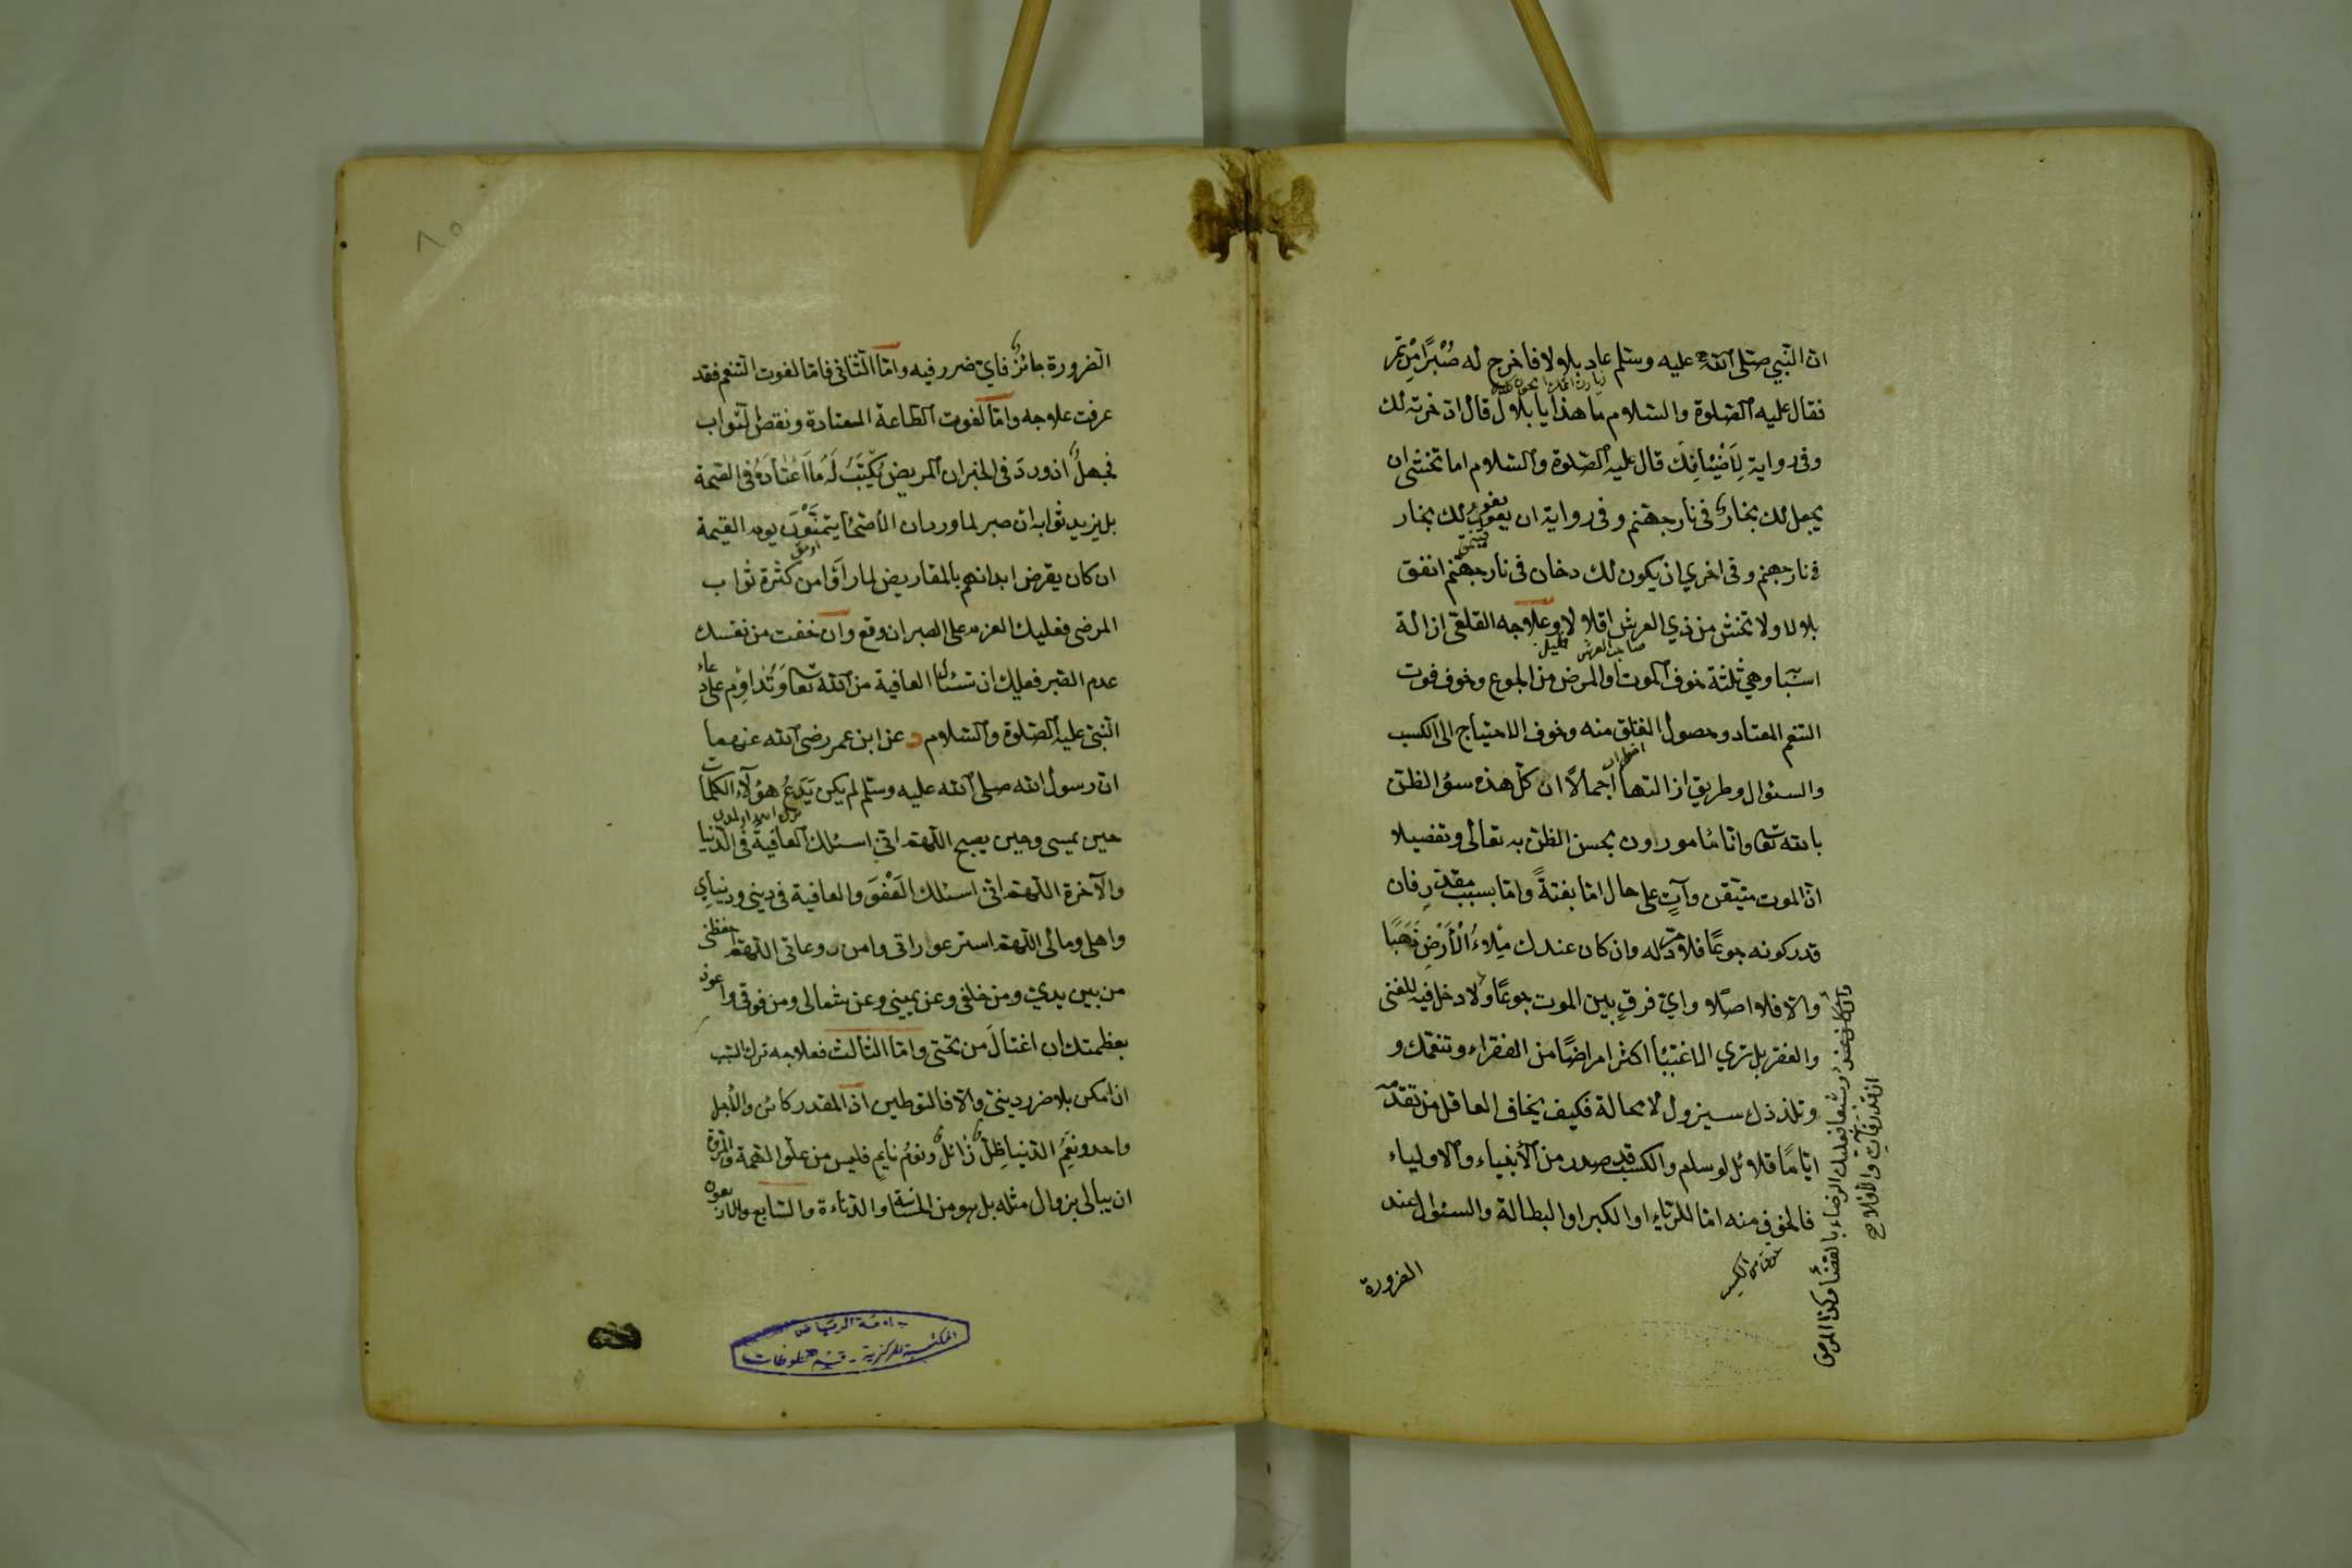 ان النبي صلى الله عليه وسلم عاد بلالا فاخرج له صُبْرًا مِنْ تمر
فقال عليه الصلوة والسلام ما هذا يا بلال قال ادخرته لك
وفى رواية لِأَضْيَافِكَ قال عليه الصلوة والسلام اما تخشى ان
يجعل لك بخار فى نار جهنم وفى رواية ان يفور لك بخار
فى نار جهنم وفى اخرى ان يكون لك دخان فى نار جهنم انفق
بلالا ولا تخش من ذي العرش اقلالا وعلاجه القلقى ازالة
اسبابها وهى ثلثة خوف الموت او المرض من الجوع وخوف فوت
التنعم المعتاد وحصول القلق منه وخوف الاحتياج الى الكسب
والسئوال وطريق ازالتها اجمالاً ان كلّ هذه سؤ الظن
بالله تعا وانا مأمورون بحسن الظن به تعالى وتفصيلا
ان الموت متيقن وآتٍ على حال اما بغتةً واما بسبب مقدر فان
قدر كونه جوعًا فلا مرد له وان كان عندك مِلاءُ الْأَرْضِ ذَهَبًا
والا فلا اصلا واي فرقٍ بين الموت جوعًا ولا دخل فيه للغنى
والفقر بل ترى الاغنيا اكثر امراضًا من الفقراء وتنعمك و
وتلذذك سيزول لا محالة فكيف يخاف العاقل من تقدمه
ايامًا قلائل لو سلم والكسب قد صدر من الأنبياء والاولياء
فالخوف منه اما للرياء او الكبر او البطالة والسئوال عند
الضرورة
الضرورة جائز فاي ضرر فيه واما الثانى فاما لفوت التنعم فقد
عرفت علاجه واما لفوت الطاعة المعتادة ونقص الثواب
فجهل اذ ورد فى الخبر ان المريض يُكْتَبُ لَهُ مَا اعْتَادَهُ فى القيمة
بل يزيد ثوابه ان صبر لما ورد ان الاصحا يتمنَّوْن يوم القيمة
ان كان يقرض ابدانهم بالمقاريض لما رآوا من كثرة ثواب
المرضى فعليك العزم على الصبر ان وقع وان خفت من نفسك
عدم الصبر فعليك ان تسئال العافية من الله تعا وَتُدَاوِم على دعاء
النبى عليه الصلوة والسلام د عن ابن عمر رضى الله عنهما
ان رسول الله صلى الله عليه وسلم لم يكن يَدَعُ هؤلآء الكلمات
حين يمسى وحين يصبح اللهم انى اسئلك العافية فى الدنيا
والآخرة اللهم انى اسئلك العَفْوَ والعافية فى دينى ودنياي
واهلى ومالى اللهم استر عوراتى وامن روعاتى اللهم احفظنى
من بين يدي ومن خلفى وعن يمينى وعن شمالى ومن فوقى واعوذ
بعظمتك ان اغتالَ من تحتى واما الثالث فعلاجه ترك السبب
ان امكن بلا ضرر دينى والا فالتوطين اذ المقدر كائن والأجل
واحد ونِعَمُ الدنيا ظِلّ زائل ونومُ نايمٍ فليس من علو الهمة والمروة
ان يبالى بزوال مثله بل هو من الخساسة والدناءة والسابع والاربعون
جامعة الرياض
المكتبة المركزية - قسم المخطوطات